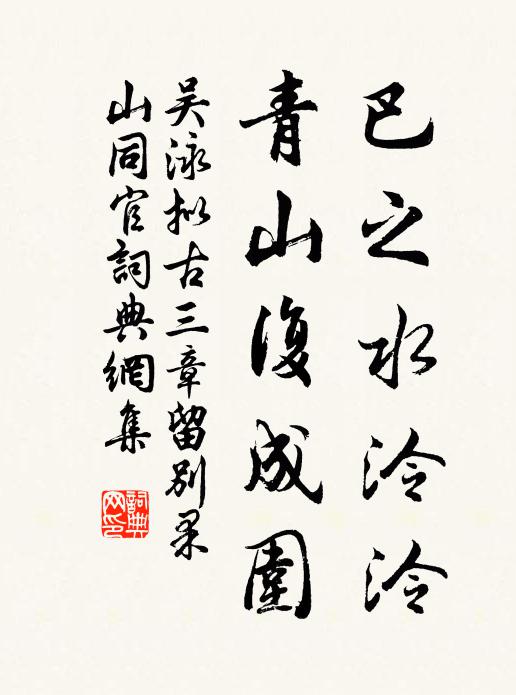 巴之水泠泠
青山復成圍
吴泳拟古三章留别果
山同官詞典網集
詞典网印